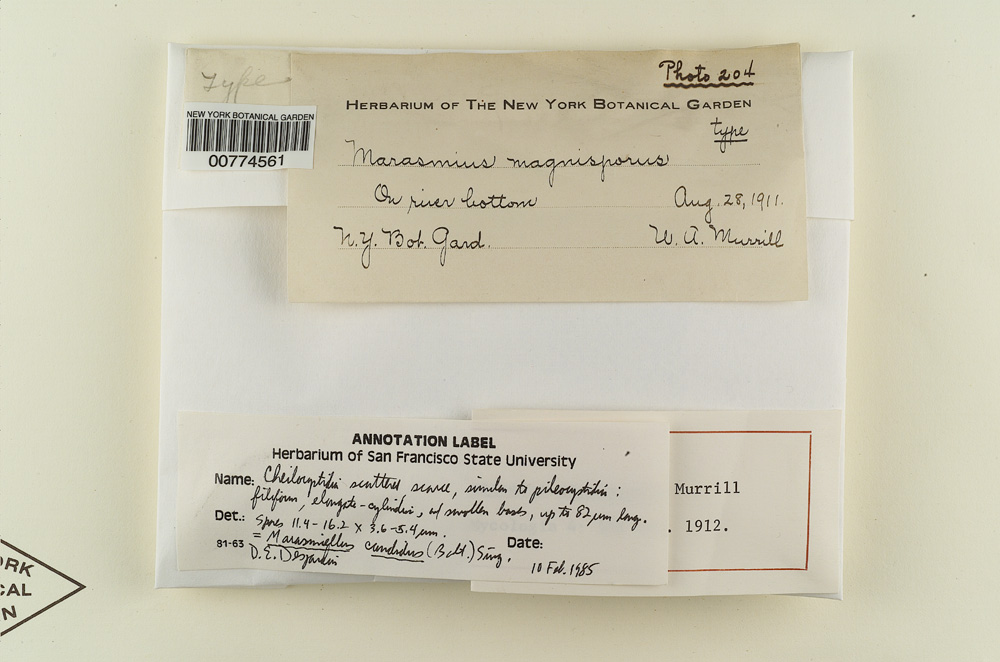 Type
NEW YORK BOTANICAL GARDEN
00774561
Photo 204
HERBARIUM OF THE NEW YORK BOTANICAL GARDEN
type
Marasmius magnisporus
On river bottom Aug. 28, 1911.
N.Y. Bot. Gard. W. A. Murrill
ANNOTATION LABEL
Herbarium of San Francisco State University
Name: Cheilocystidia scattered scarce, similar to pileocystidia:
filiform, elongate-cylindric, w/ swollen bases, up to 82 µm long.
Det.: Spores 11.4-16.2 x 3.6-5.4 µm.
= Marasmiellus candidus (Bolt.) Sing.
81-63 D.E. Desjardin Date:
10 Feb. 1985
Murrill
. 1912.
ORK
CAL
N